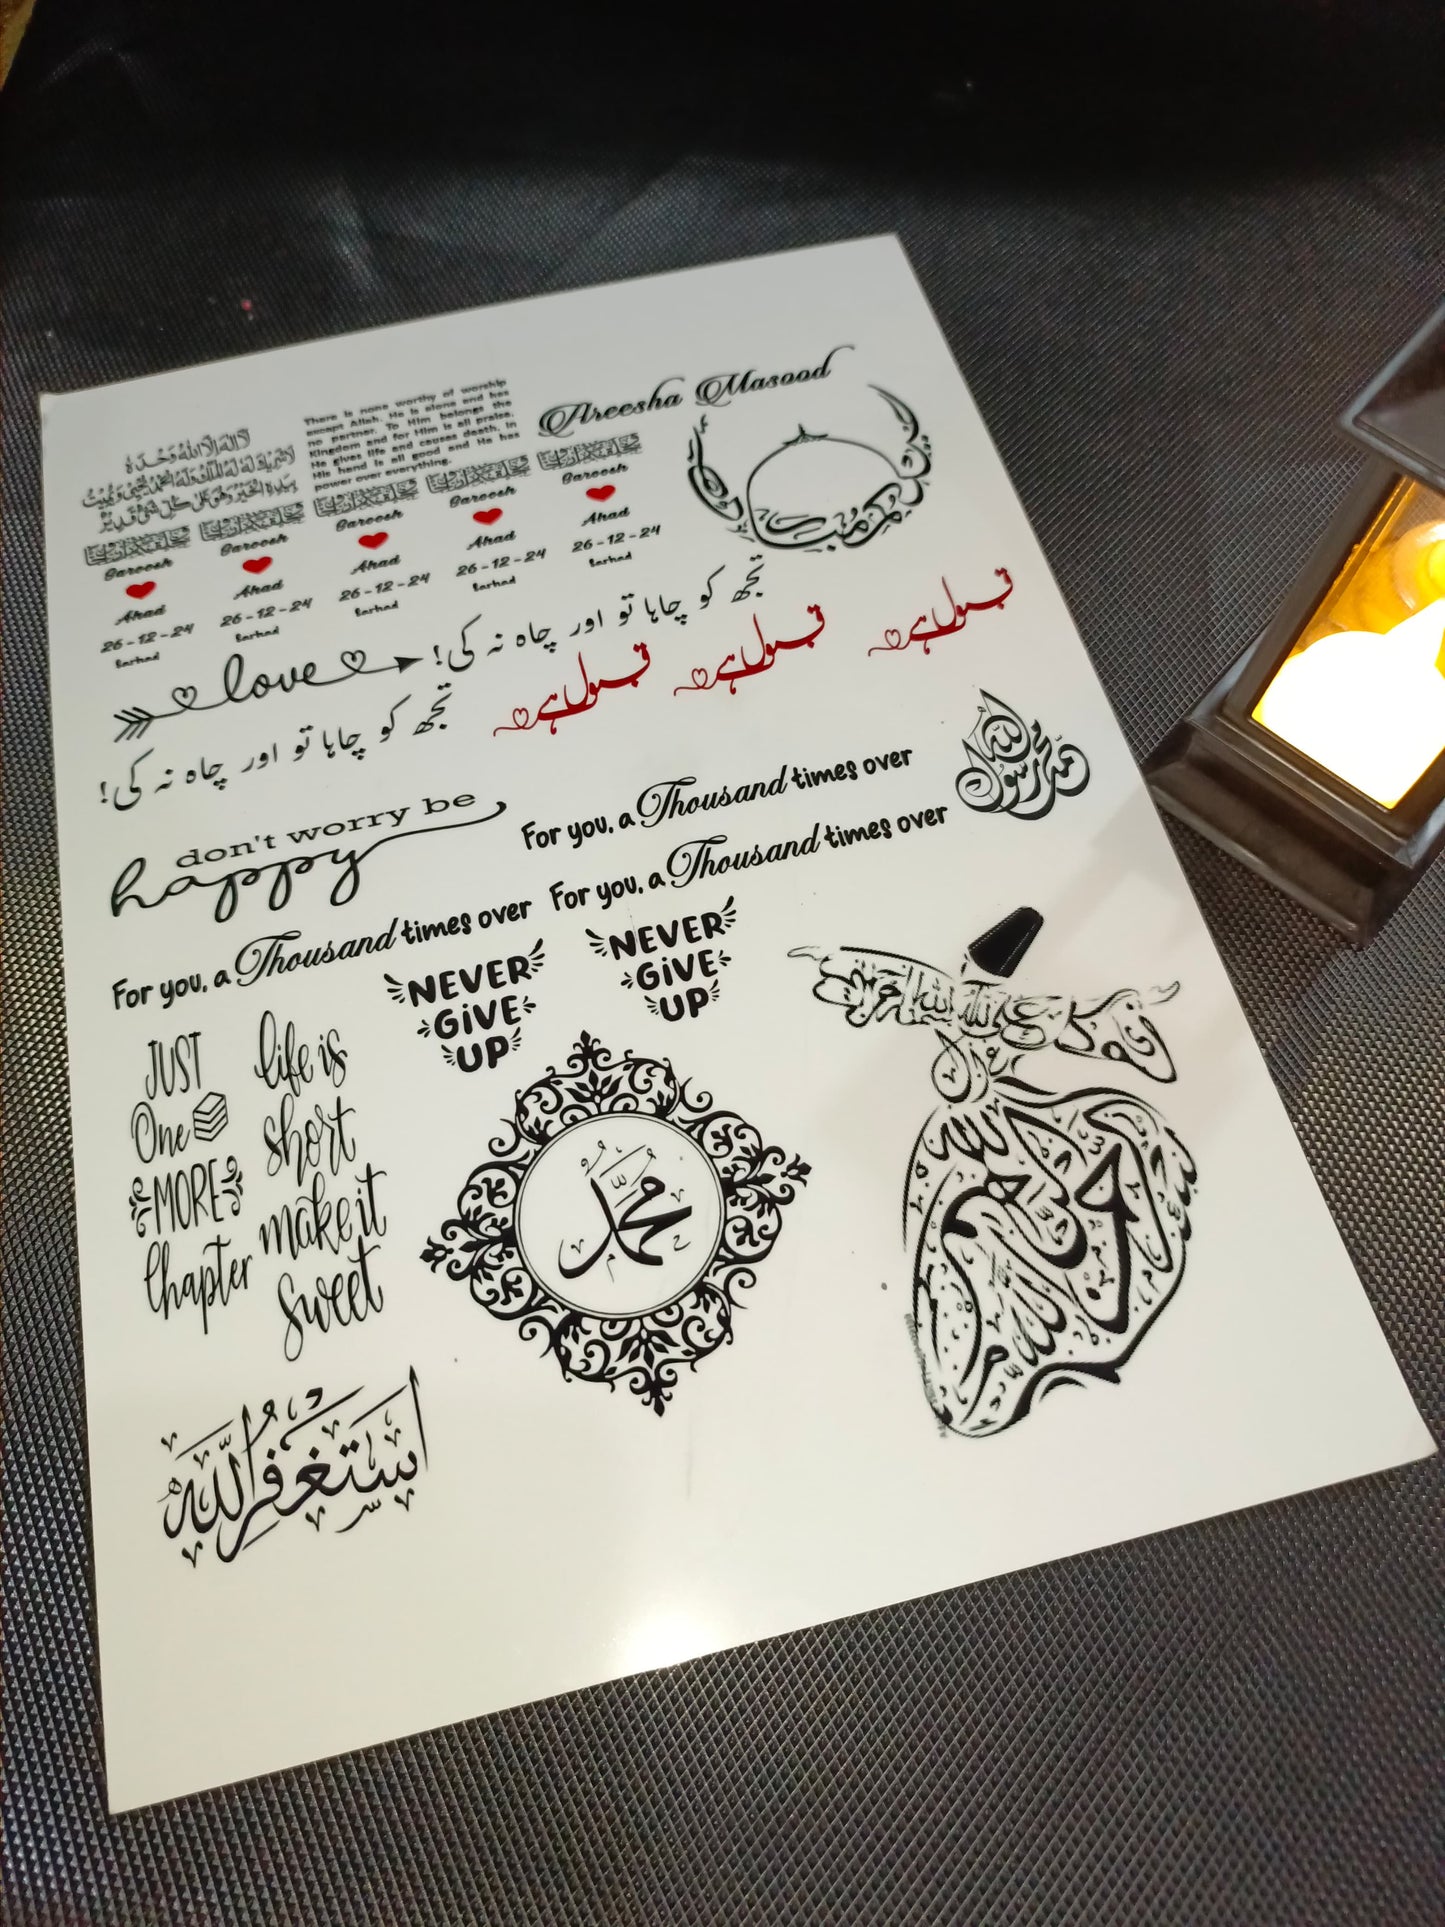 لا اله الا الله وحده
لا شريك له له الملك وله الحمد يحيي ويميت
بيده الخير وهو على كل شيء قدير
There is none worthy of worship
except Allah. He is alone and has
no partner. To Him belongs the
Kingdom and for Him is all praise.
He gives life and causes death. In
His hand is all good and He has
power over everything.
Areesha Masood
Garoosh
Ahad
26-12-24
Sarhad
Garoosh
Ahad
26-12-24
Sarhad
Garoosh
Ahad
26-12-24
Sarhad
Garoosh
Ahad
26-12-24
Sarhad
Garoosh
Ahad
26-12-24
Sarhad
تجھ کو چاہا تو اور چاہ نہ کی!
love
قبول ہے
قبول ہے
قبول ہے
تجھ کو چاہا تو اور چاہ نہ کی!
محمد رسول الله
don't worry be
happy
For you, a Thousand times over
For you, a Thousand times over
For you, a Thousand times over
NEVER
GIVE
UP
NEVER
GIVE
UP
JUST
One
MORE
Chapter
life is
short
make it
sweet
محمد
استغفر الله